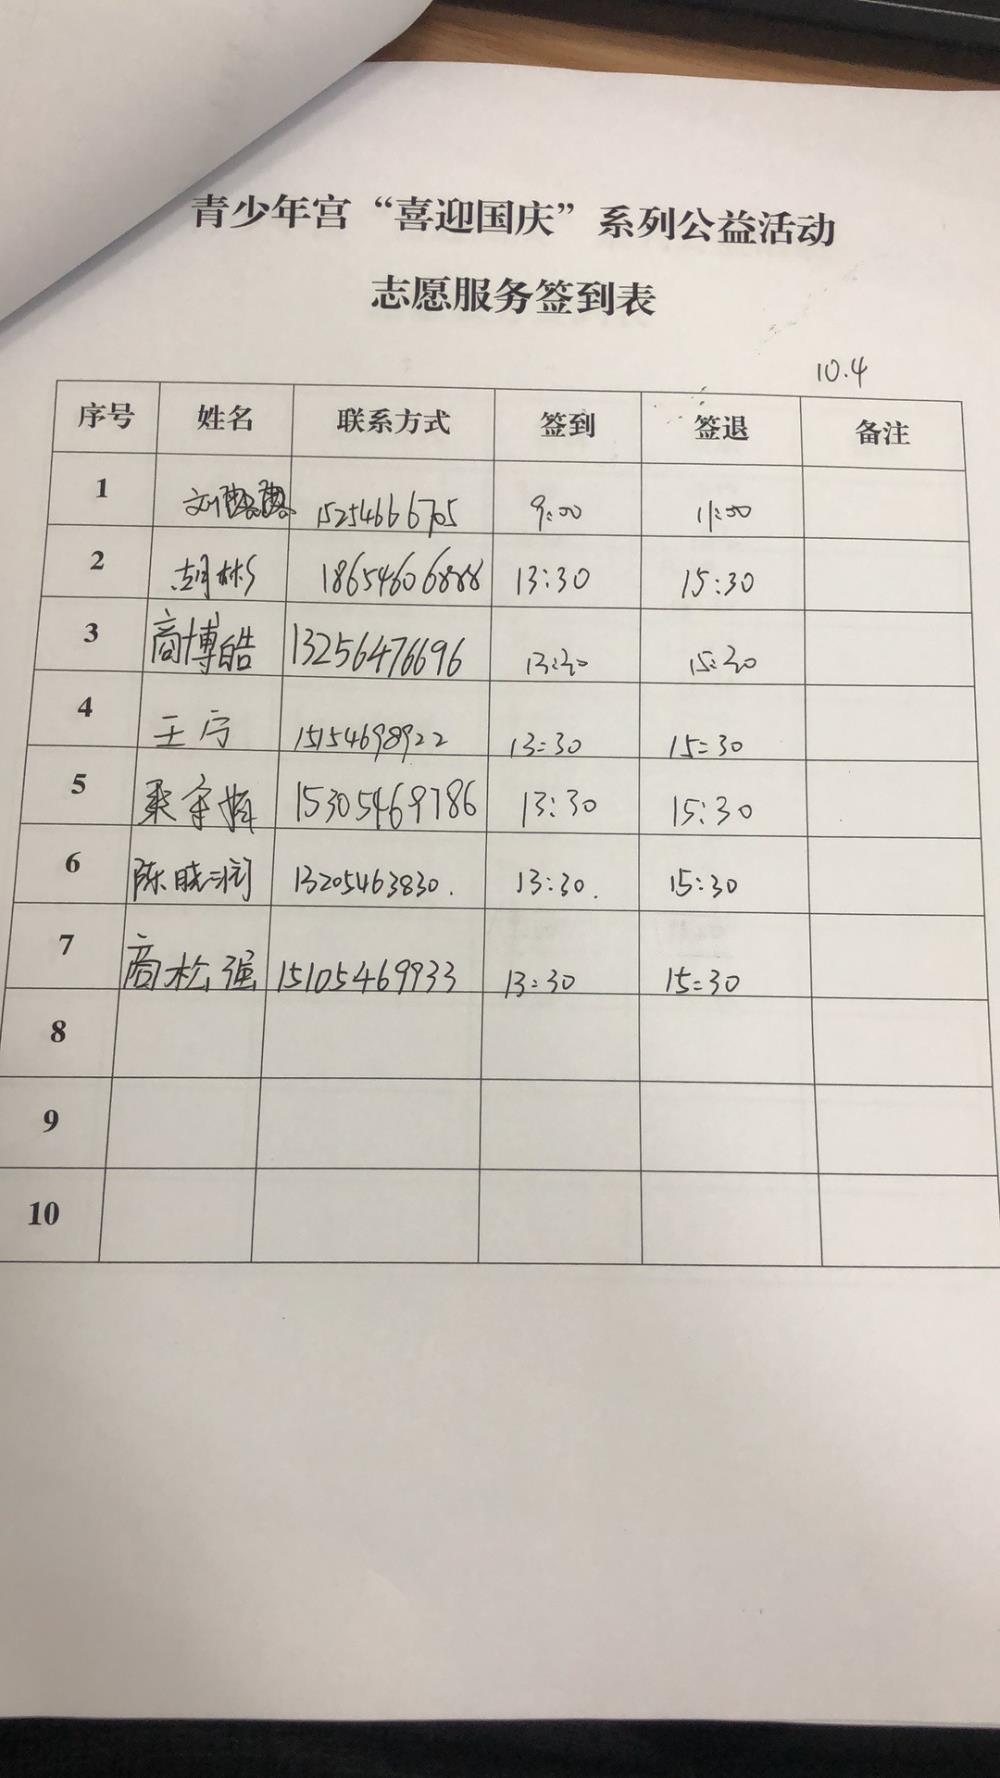 青少年宫“喜迎国庆”系列公益活动
志愿服务签到表
10.4
序号 姓名 联系方式 签到 签退 备注
1 刘 15254666705 9:00 11:00
2 胡彬 18654606888 13:30 15:30
3 商博皓 13256476696 13:30 15:30
4 王宁 15154698922 13:30 15:30
5 15305469786 13:30 15:30
6 陈晓润 13205463830. 13:30. 15:30
7 商松强 15105469933 13:30 15:30
8
9
10